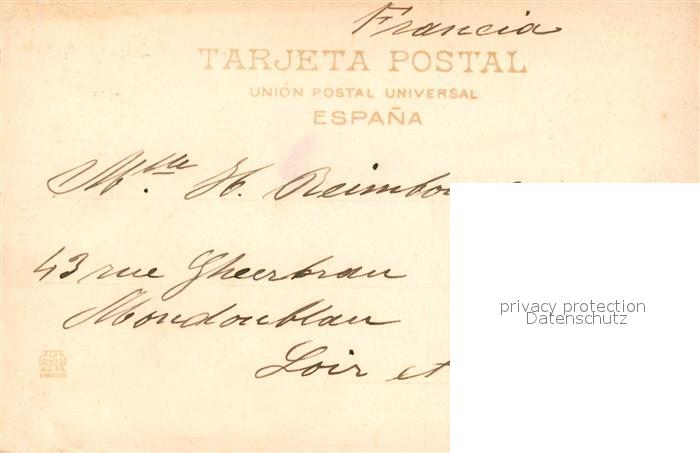 Francia
TARJETA POSTAL
UNIÓN POSTAL UNIVERSAL
ESPAÑA
Mlle H.
43 rue Gheerbran
Mondoublau
Loir et
privacy protection
Datenschutz